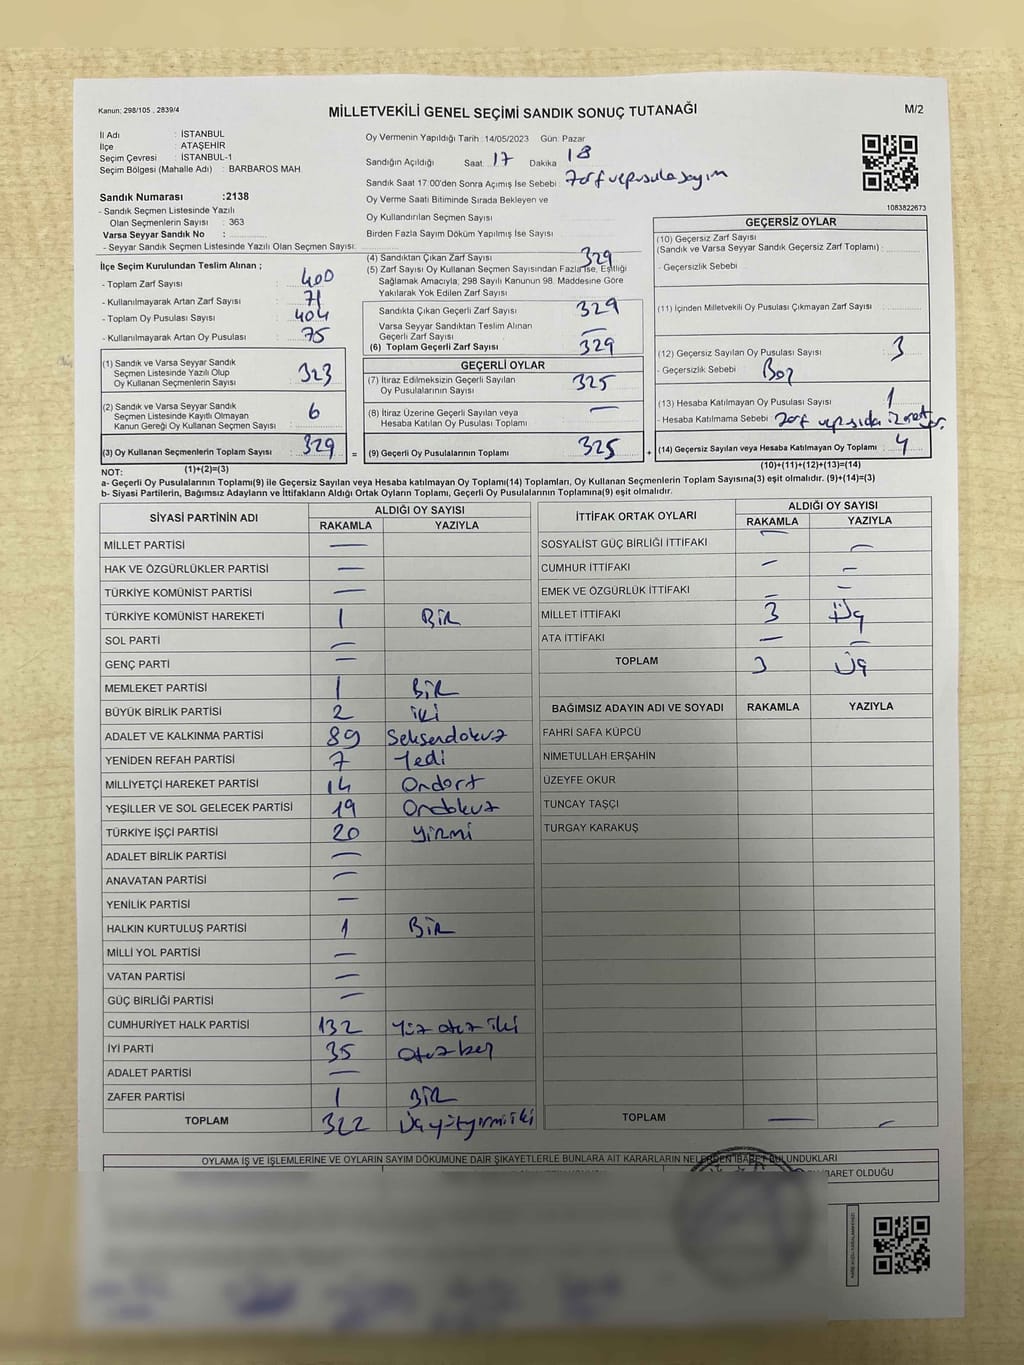 Kanun: 298/105 , 2839/4
MİLLETVEKİLİ GENEL SEÇİMİ SANDIK SONUÇ TUTANAĞI
M/2
İl Adı : İSTANBUL
İlçe : ATAŞEHİR
Seçim Çevresi : İSTANBUL-1
Seçim Bölgesi (Mahalle Adı) : BARBAROS MAH
Sandık Numarası :2138
- Sandık Seçmen Listesinde Yazılı
Olan Seçmenlerin Sayısı : 363
Varsa Seyyar Sandık No :
- Seyyar Sandık Seçmen Listesinde Yazılı Olan Seçmen Sayısı:
Oy Vermenin Yapıldığı Tarih :14/05/2023 Gün: Pazar
Sandığın Açıldığı Saat: 17 Dakika 18
Sandık Saat 17:00'den Sonra Açımış İse Sebebi : Zarf ve pusula sayım
Oy Verme Saati Bitiminde Sırada Bekleyen ve
Oy Kullandırılan Seçmen Sayısı
Birden Fazla Sayım Döküm Yapılmış İse Sayısı
1083822673
İlçe Seçim Kurulundan Teslim Alınan ;
- Toplam Zarf Sayısı : 400
- Kullanılmayarak Artan Zarf Sayısı : 71
- Toplam Oy Pusulası Sayısı : 404
- Kullanılmayarak Artan Oy Pusulası : 75
(1) Sandık ve Varsa Seyyar Sandık
Seçmen Listesinde Yazılı Olup
Oy Kullanan Seçmenlerin Sayısı : 323
(2) Sandık ve Varsa Seyyar Sandık
Seçmen Listesinde Kayıtlı Olmayan
Kanun Gereği Oy Kullanan Seçmen Sayısı : 6
(3) Oy Kullanan Seçmenlerin Toplam Sayısı : 329
(1)+(2)=(3)
(4) Sandıktan Çıkan Zarf Sayısı : 329
(5) Zarf Sayısı Oy Kullanan Seçmen Sayısından Fazla İse, Eşitliği
Sağlamak Amacıyla; 298 Sayılı Kanunun 98. Maddesine Göre
Yakılarak Yok Edilen Zarf Sayısı
Sandıkta Çıkan Geçerli Zarf Sayısı : 329
Varsa Seyyar Sandıktan Teslim Alınan
Geçerli Zarf Sayısı : —
(6) Toplam Geçerli Zarf Sayısı : 329
GEÇERLİ OYLAR
(7) İtiraz Edilmeksizin Geçerli Sayılan
Oy Pusulalarının Sayısı : 325
(8) İtiraz Üzerine Geçerli Sayılan veya
Hesaba Katılan Oy Pusulası Toplamı : —
= (9) Geçerli Oy Pusulalarının Toplamı : 325 +
GEÇERSİZ OYLAR
(10) Geçersiz Zarf Sayısı
(Sandık ve Varsa Seyyar Sandık Geçersiz Zarf Toplamı) :
- Geçersizlik Sebebi
(11) İçinden Milletvekili Oy Pusulası Çıkmayan Zarf Sayısı
(12) Geçersiz Sayılan Oy Pusulası Sayısı : 3
- Geçersizlik Sebebi Boş
(13) Hesaba Katılmayan Oy Pusulası Sayısı : 1
- Hesaba Katılmama Sebebi : Zarf
(14) Geçersiz Sayılan veya Hesaba Katılmayan Oy Toplamı : 4
(10)+(11)+(12)+(13)=(14)
NOT:
a- Geçerli Oy Pusulalarının Toplamı(9) ile Geçersiz Sayılan veya Hesaba katılmayan Oy Toplamı(14) Toplamları, Oy Kullanan Seçmenlerin Toplam Sayısına(3) eşit olmalıdır. (9)+(14)=(3)
b- Siyasi Partilerin, Bağımsız Adayların ve İttifakların Aldığı Ortak Oyların Toplamı, Geçerli Oy Pusulalarının Toplamına(9) eşit olmalıdır.
SİYASİ PARTİNİN ADI ALDIĞI OY SAYISI
RAKAMLA YAZIYLA
MİLLET PARTİSİ —
HAK VE ÖZGÜRLÜKLER PARTİSİ —
TÜRKİYE KOMÜNİST PARTİSİ —
TÜRKİYE KOMÜNİST HAREKETİ 1 BİR
SOL PARTİ —
GENÇ PARTİ —
MEMLEKET PARTİSİ 1 BİR
BÜYÜK BİRLİK PARTİSİ 2 iki
ADALET VE KALKINMA PARTİSİ 89 Seksendokuz
YENİDEN REFAH PARTİSİ 7 Yedi
MİLLİYETÇİ HAREKET PARTİSİ 14 Ondört
YEŞİLLER VE SOL GELECEK PARTİSİ 19 Ondokuz
TÜRKİYE İŞÇİ PARTİSİ 20 yirmi
ADALET BİRLİK PARTİSİ —
ANAVATAN PARTİSİ —
YENİLİK PARTİSİ —
HALKIN KURTULUŞ PARTİSİ 1 BİR
MİLLİ YOL PARTİSİ —
VATAN PARTİSİ —
GÜÇ BİRLİĞİ PARTİSİ —
CUMHURİYET HALK PARTİSİ 132 Yüz otuz iki
İYİ PARTİ 35 otuz beş
ADALET PARTİSİ —
ZAFER PARTİSİ 1 BİR
TOPLAM 322 Üçyüzyirmiiki
İTTİFAK ORTAK OYLARI ALDIĞI OY SAYISI
RAKAMLA YAZIYLA
SOSYALİST GÜÇ BİRLİĞİ İTTİFAKI — —
CUMHUR İTTİFAKI — —
EMEK VE ÖZGÜRLÜK İTTİFAKI — —
MİLLET İTTİFAKI 3 Üç
ATA İTTİFAKI — —
TOPLAM 3 Üç
BAĞIMSIZ ADAYIN ADI VE SOYADI RAKAMLA YAZIYLA
FAHRİ SAFA KÜPCÜ
NİMETULLAH ERŞAHİN
ÜZEYFE OKUR
TUNCAY TAŞÇI
TURGAY KARAKUŞ
TOPLAM — —
OYLAMA İŞ VE İŞLEMLERİNE VE OYLARIN SAYIM DÖKÜMÜNE DAİR ŞİKAYETLERLE BUNLARA AİT KARARLARIN NELERDEN İBARET BULUNDUKLARI
İBARET OLDUĞU